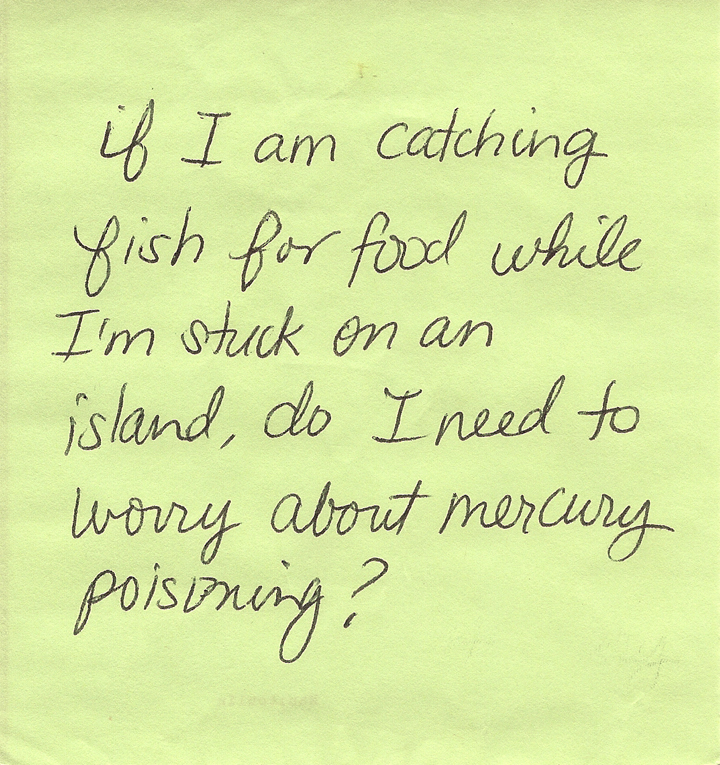 if I am catching
fish for food while
I'm stuck on an
island, do I need to
worry about mercury
poisoning?